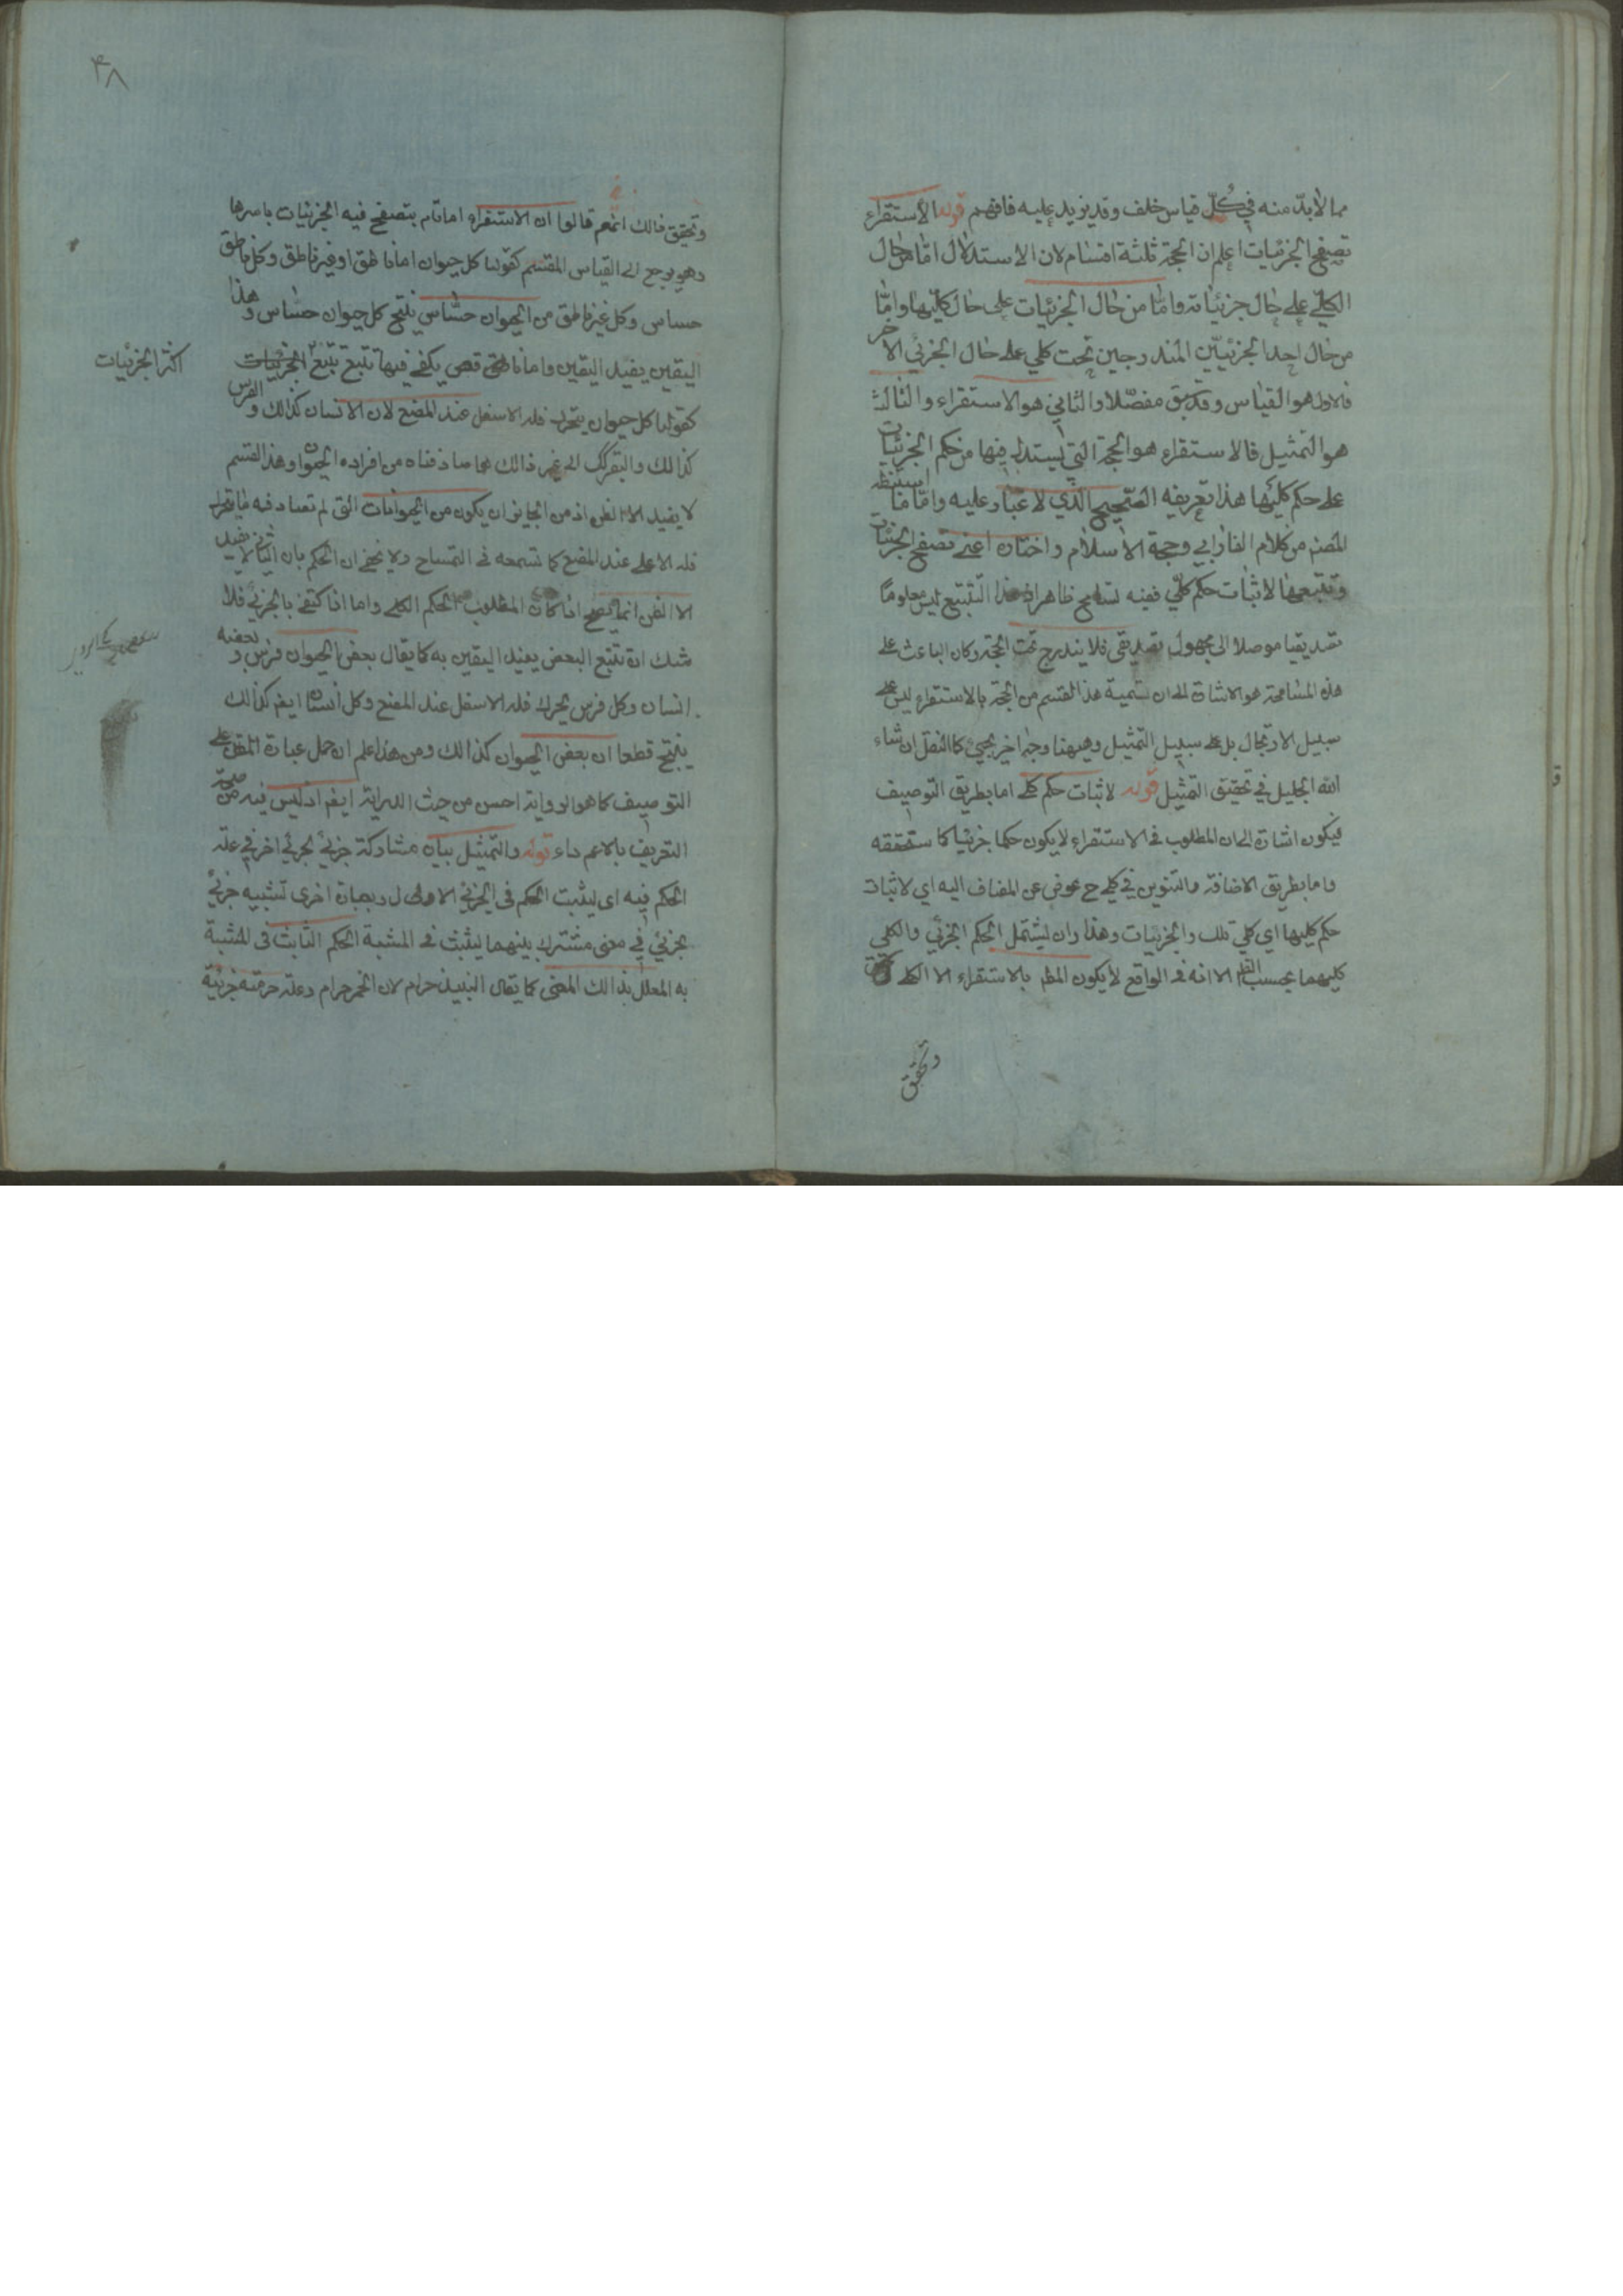 مما لابدّ منه في كلّ قياس خلف وقد يزيد عليه فافهم قوله الاستقراء
تصفح الجزئيات اعلم ان الحجة ثلثة اقسام لان الاستدلال اما من حال
الكلّي على حال جزئياته واما من حال الجزئيات على حال كليّها واما
من حال احد الجزئيين المندرجين تحت كلي على حال الجزئي الاخر
فالاول هو القياس وقد سبق مفصّلا والثاني هو الاستقراء والثالث
هو التمثيل فالاستقراء هو الحجة التي يستدل فيها من حكم الجزئيات
على حكم كليّها هذا تعريفه الصحيح الذي لا غبار عليه واما ما استنبطه
المصنف من كلام الفارابي وحجة الاسلام واختاره اعني تصفح الجزئيات
وتتبعها لاثبات حكم كلّي ففيه تسامح ظاهر اذ هذا التتبع ليس معلوما
تصديقيا موصلا الى مجهول تصديقي فلا يندرج تحت الحجة وكان الباعث على
هذه المسامحة هو الاشارة الى ان تسمية هذا القسم من الحجة بالاستقراء ليس على
سبيل الارتجال بل على سبيل التمثيل وهيهنا وجه اخر يجيئ كاالنقل ان شاء
الله الجليل في تحقيق التمثيل قوله لاثبات حكم كلي اما بطريق التوصيف
فيكون اشارة الى ان المطلوب في الاستقراء لا يكون حكما جزئيا كما ستحققه
واما بطريق الاضافة والتنوين في كلي ح عوض عن المضاف اليه اي لاثبات
حكم كليها اي كلي تلك والجزئيات وهذا وان ليشتمل الحكم الجزئي والكلي
كليهما بحسب الظ الا انه في الواقع لا يكون المط بالاستقراء الا الكلي
وتحقيق
۴۸
وتحقيق ذالك انهم قالوا ان الاستقراء اما تام يتصفح فيه الجزئيات باسرها
وهو يرجع الى القياس المقسم كقولنا كل حيوان اما ناطق او غير ناطق وكل ناطق
حساس وكل غير ناطق من الحيوان حساس ينتج كل حيوان حساس وهذا
اليقين يفيد اليقين واما ناقص يكفي فيها تتبع
اكثر الجزئيات
كقولنا كل حيوان يتحرك فكه الاسفل عند المضغ لان الانسان كذالك والفرس
كذالك والبقر كك الى غير ذالك مما صادفناه من افراد الحيوان وهذا القسم
لا يفيد الا الظن اذ من الجايز ان يكون من الحيوانات التي لم تصادفه ما يتحرك
فكه الاعلى عند المضغ كما تسمعه في التمساح ولا يخفى ان الحكم بان الثاني لا يفيد
الا الظن انما يصح اذا كان المطلوب الحكم الكلي واما اذا اكتفى بالجزئي فلا
شك ان تتبع البعض يفيد اليقين به كما يقال بعض الحيوان فرس وبعضه
انسان وكل فرس يحرك فكه الاسفل عند المضغ وكل انسان ايضا كذالك
ينتج قطعا ان بعض الحيوان كذالك ومن هذا علم ان حمل عبارة المتن على
التوصيف كما هو الرواية احسن من حيث الدراية ايضا اذ ليس فيه
التعريف بالاعم داء قوله والتمثيل بيان مشاركة جزئي لجزئي اخر في علة
الحكم فيه اي ليثبت الحكم في الجزئي الاول وبعبارة اخرى تشبيه جزئي
بجزئي في معنى مشترك بينهما ليثبت في المشبه الحكم الثابت في المشبه
به المعلل بذالك المعنى كما يقال النبيذ حرام لان الخمر حرام وعلة حرمته